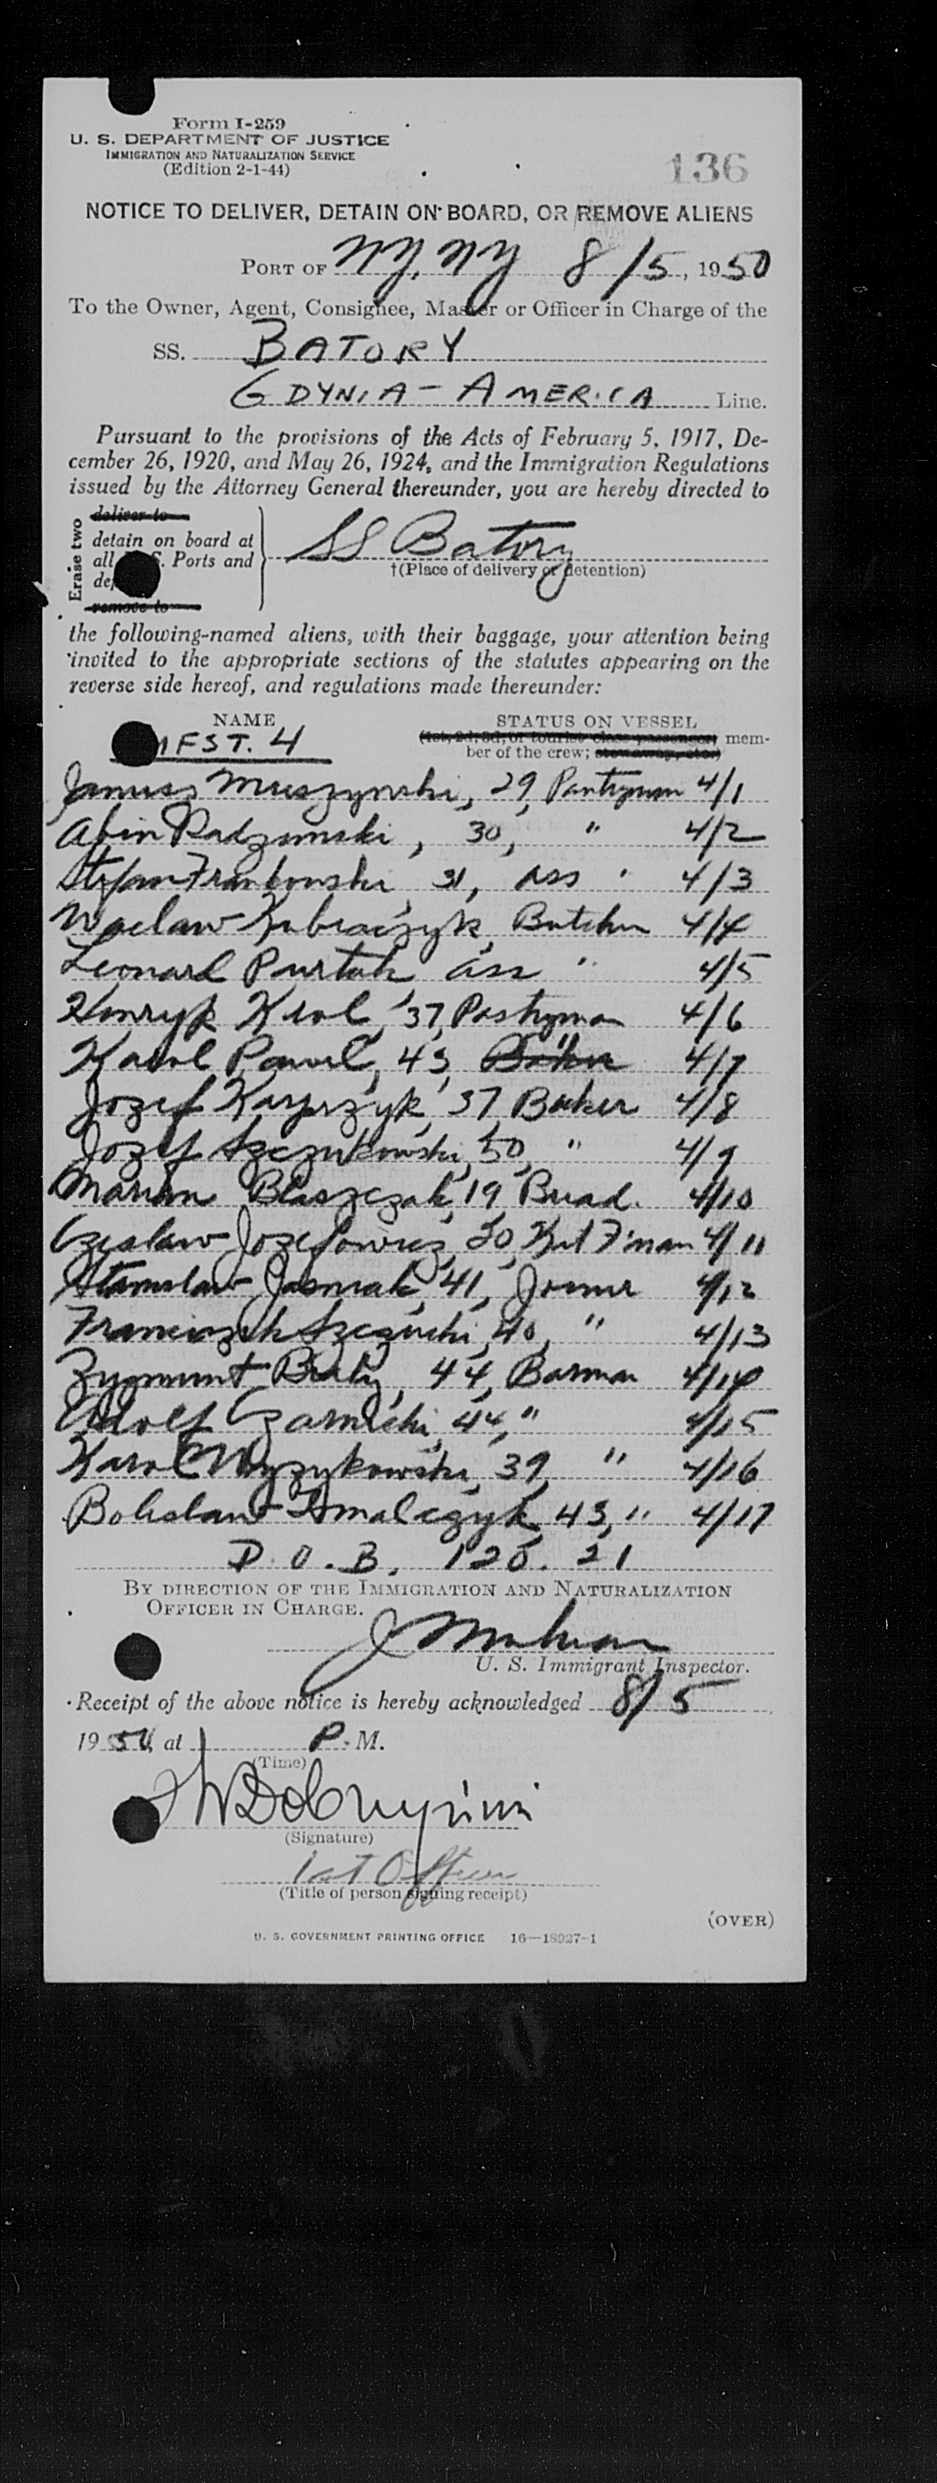 Form I-259
U. S. DEPARTMENT OF JUSTICE
IMMIGRATION AND NATURALIZATION SERVICE
(Edition 2-1-44)
136
NOTICE TO DELIVER, DETAIN ON BOARD, OR REMOVE ALIENS
PORT OF NY, NY 8/5, 1950
To the Owner, Agent, Consignee, Master or Officer in Charge of the
SS. BATORY
GDYNIA - AMERICA Line.
Pursuant to the provisions of the Acts of February 5, 1917, De-
cember 26, 1920, and May 26, 1924, and the Immigration Regulations
issued by the Attorney General thereunder, you are hereby directed to
Erase two
deliver to
detain on board at
all S. Ports and
de
remove to
SS Batory
†(Place of delivery or detention)
the following-named aliens, with their baggage, your attention being
invited to the appropriate sections of the statutes appearing on the
reverse side hereof, and regulations made thereunder:
NAME STATUS ON VESSEL
(1st, 2d, 3d, or tourist class passenger) mem-
ber of the crew;
MFST. 4
Janusz Muszynski, 29, Pantryman 4/1
Albin Radzimski, 30, " 4/2
Stefan Frankowski, 31, ass " 4/3
Waclaw Butcher 4/4
Leonard Purtak ass " 4/5
Henryk Krol, 37, 4/6
Karol Pawel, 43, Baker 4/7
Jozef 37 Baker 4/8
Jozef Szczukowski, 50, " 4/9
Marian Blaszczak, 19, Bread. 4/10
Czeslaw Jozefowicz, 20, Kit F'man 4/11
Stanislaw Jasniak, 41, Joiner 4/12
Franciszek 40, " 4/13
Zygmunt 44, Barman 4/14
Adolf Czarnecki, 44, " 4/15
Karol Wyzykowski, 39, " 4/16
Boleslaw Smalczyk, 43, " 4/17
D. O. B. 120. 21
BY DIRECTION OF THE IMMIGRATION AND NATURALIZATION
OFFICER IN CHARGE.
J
U. S. Immigrant Inspector.
Receipt of the above notice is hereby acknowledged 8/5
1950, at P. M.
(Time)
(Signature)
1st Officer
(Title of person signing receipt)
(OVER)
U. S. GOVERNMENT PRINTING OFFICE 16—18927-1